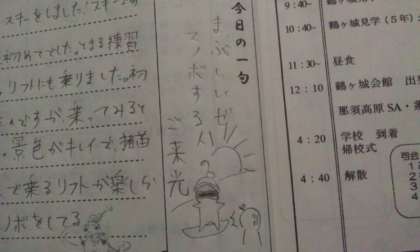 9:40~
10:40~ 鶴ヶ城見学(5年)
11:30~ 昼食
12:10 鶴ヶ城会館 出
那須高原SA・
4:20 学校 到着
帰校式
4:40 解散
1
2
3
4
今日の一句
まぶしいぜ
スノボする人の
ご来光
スキーをしました!スキーは
初めてでした。とまる練習
、リフトにも乗りました。初
ですが、乗ってみると
景色がキレイで、
で乗るリフトが楽しら
ノボをしてる